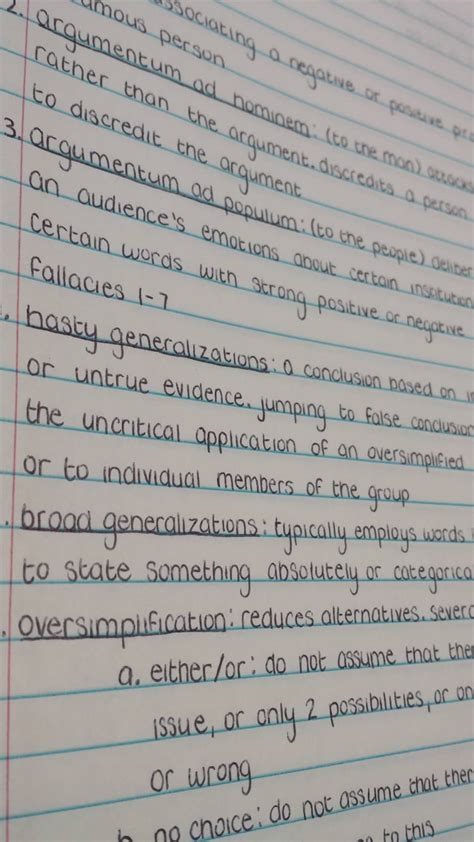 associating a negative or positive
famous person
2. argumentum ad hominem: (to the man)
rather than the argument. discredits a person
to discredit the argument
3. argumentum ad populum: (to the people)
an audience's emotions about certain
certain words with strong positive or negative
fallacies 1-7
hasty generalizations: a conclusion based on
or untrue evidence. jumping to false
the uncritical application of an oversimplified
or to individual members of the group
broad generalizations: typically employs words
to state something absolutely or
oversimplification: reduces alternatives.
a. either/or: do not assume that
issue, or only 2 possibilities, or
or wrong
no choice: do not assume that
to this